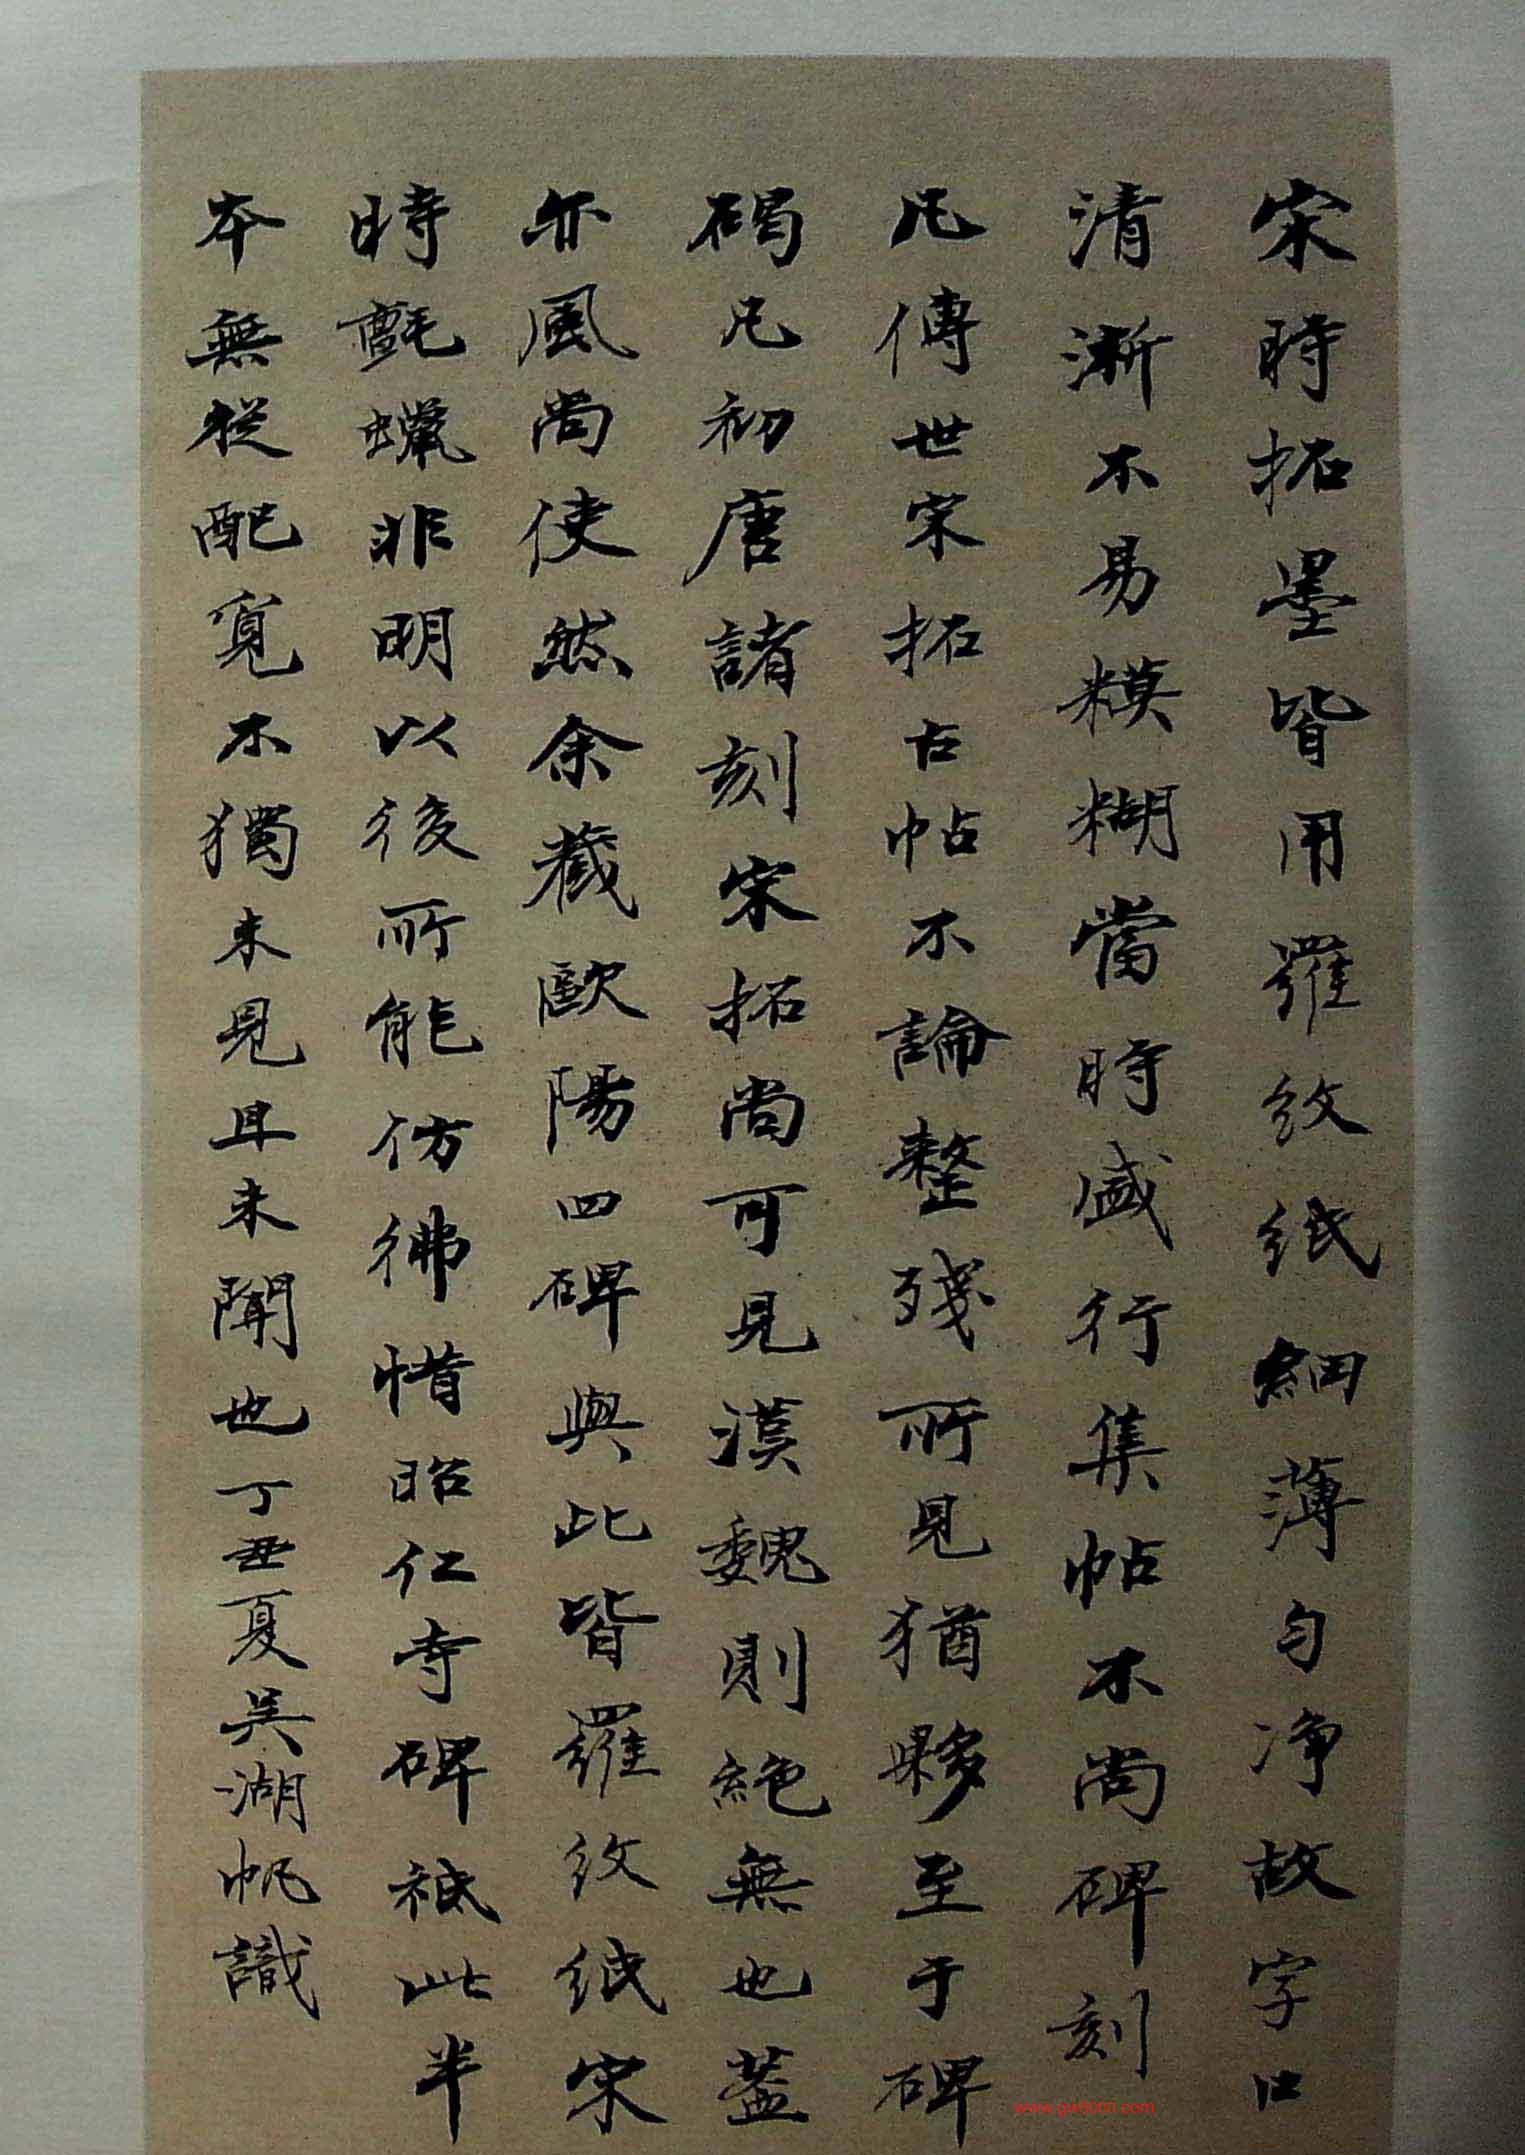 宋時拓墨皆用羅紋紙細薄勻净故字口
清漸不易糢糊當時盛行集帖不尚碑刻
凡傳世宋拓古帖不論整殘所見猶夥至于碑
碣凡初唐諸刻宋拓尚可見漢魏則絶無也蓋
亦風尚使然余藏歐陽四碑與此皆羅紋紙宋
時氈蠟非明以後所能仿彿惜昭仁寺碑祗此半
本無從配覓不獨未見且未聞也丁丑夏吴湖帆識